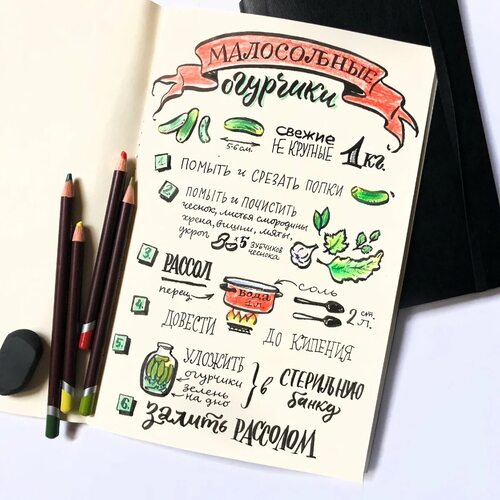 МАЛОСОЛЬНЫЕ
огурчики
5-6 см.
свежие
НЕ КРУПНЫЕ
1 кг.
1. ПОМЫТЬ И СРЕЗАТЬ ПОПКИ
2. ПОМЫТЬ И ПОЧИСТИТЬ
чеснок, листья смородины
хрена, вишни, мяты,
укроп
x5 зубчиков
чеснока
3. РАССОЛ
перец
вода
1 л
соль
2 ст.
л.
4. ДОВЕСТИ ДО КИПЕНИЯ
5. УЛОЖИТЬ
огурчики
зелень
на дно
в СТЕРИЛЬНУЮ
банку
6. залить РАССОЛОМ